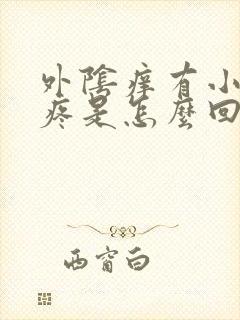 外陰痒有小
疼是怎麼回
西窗白